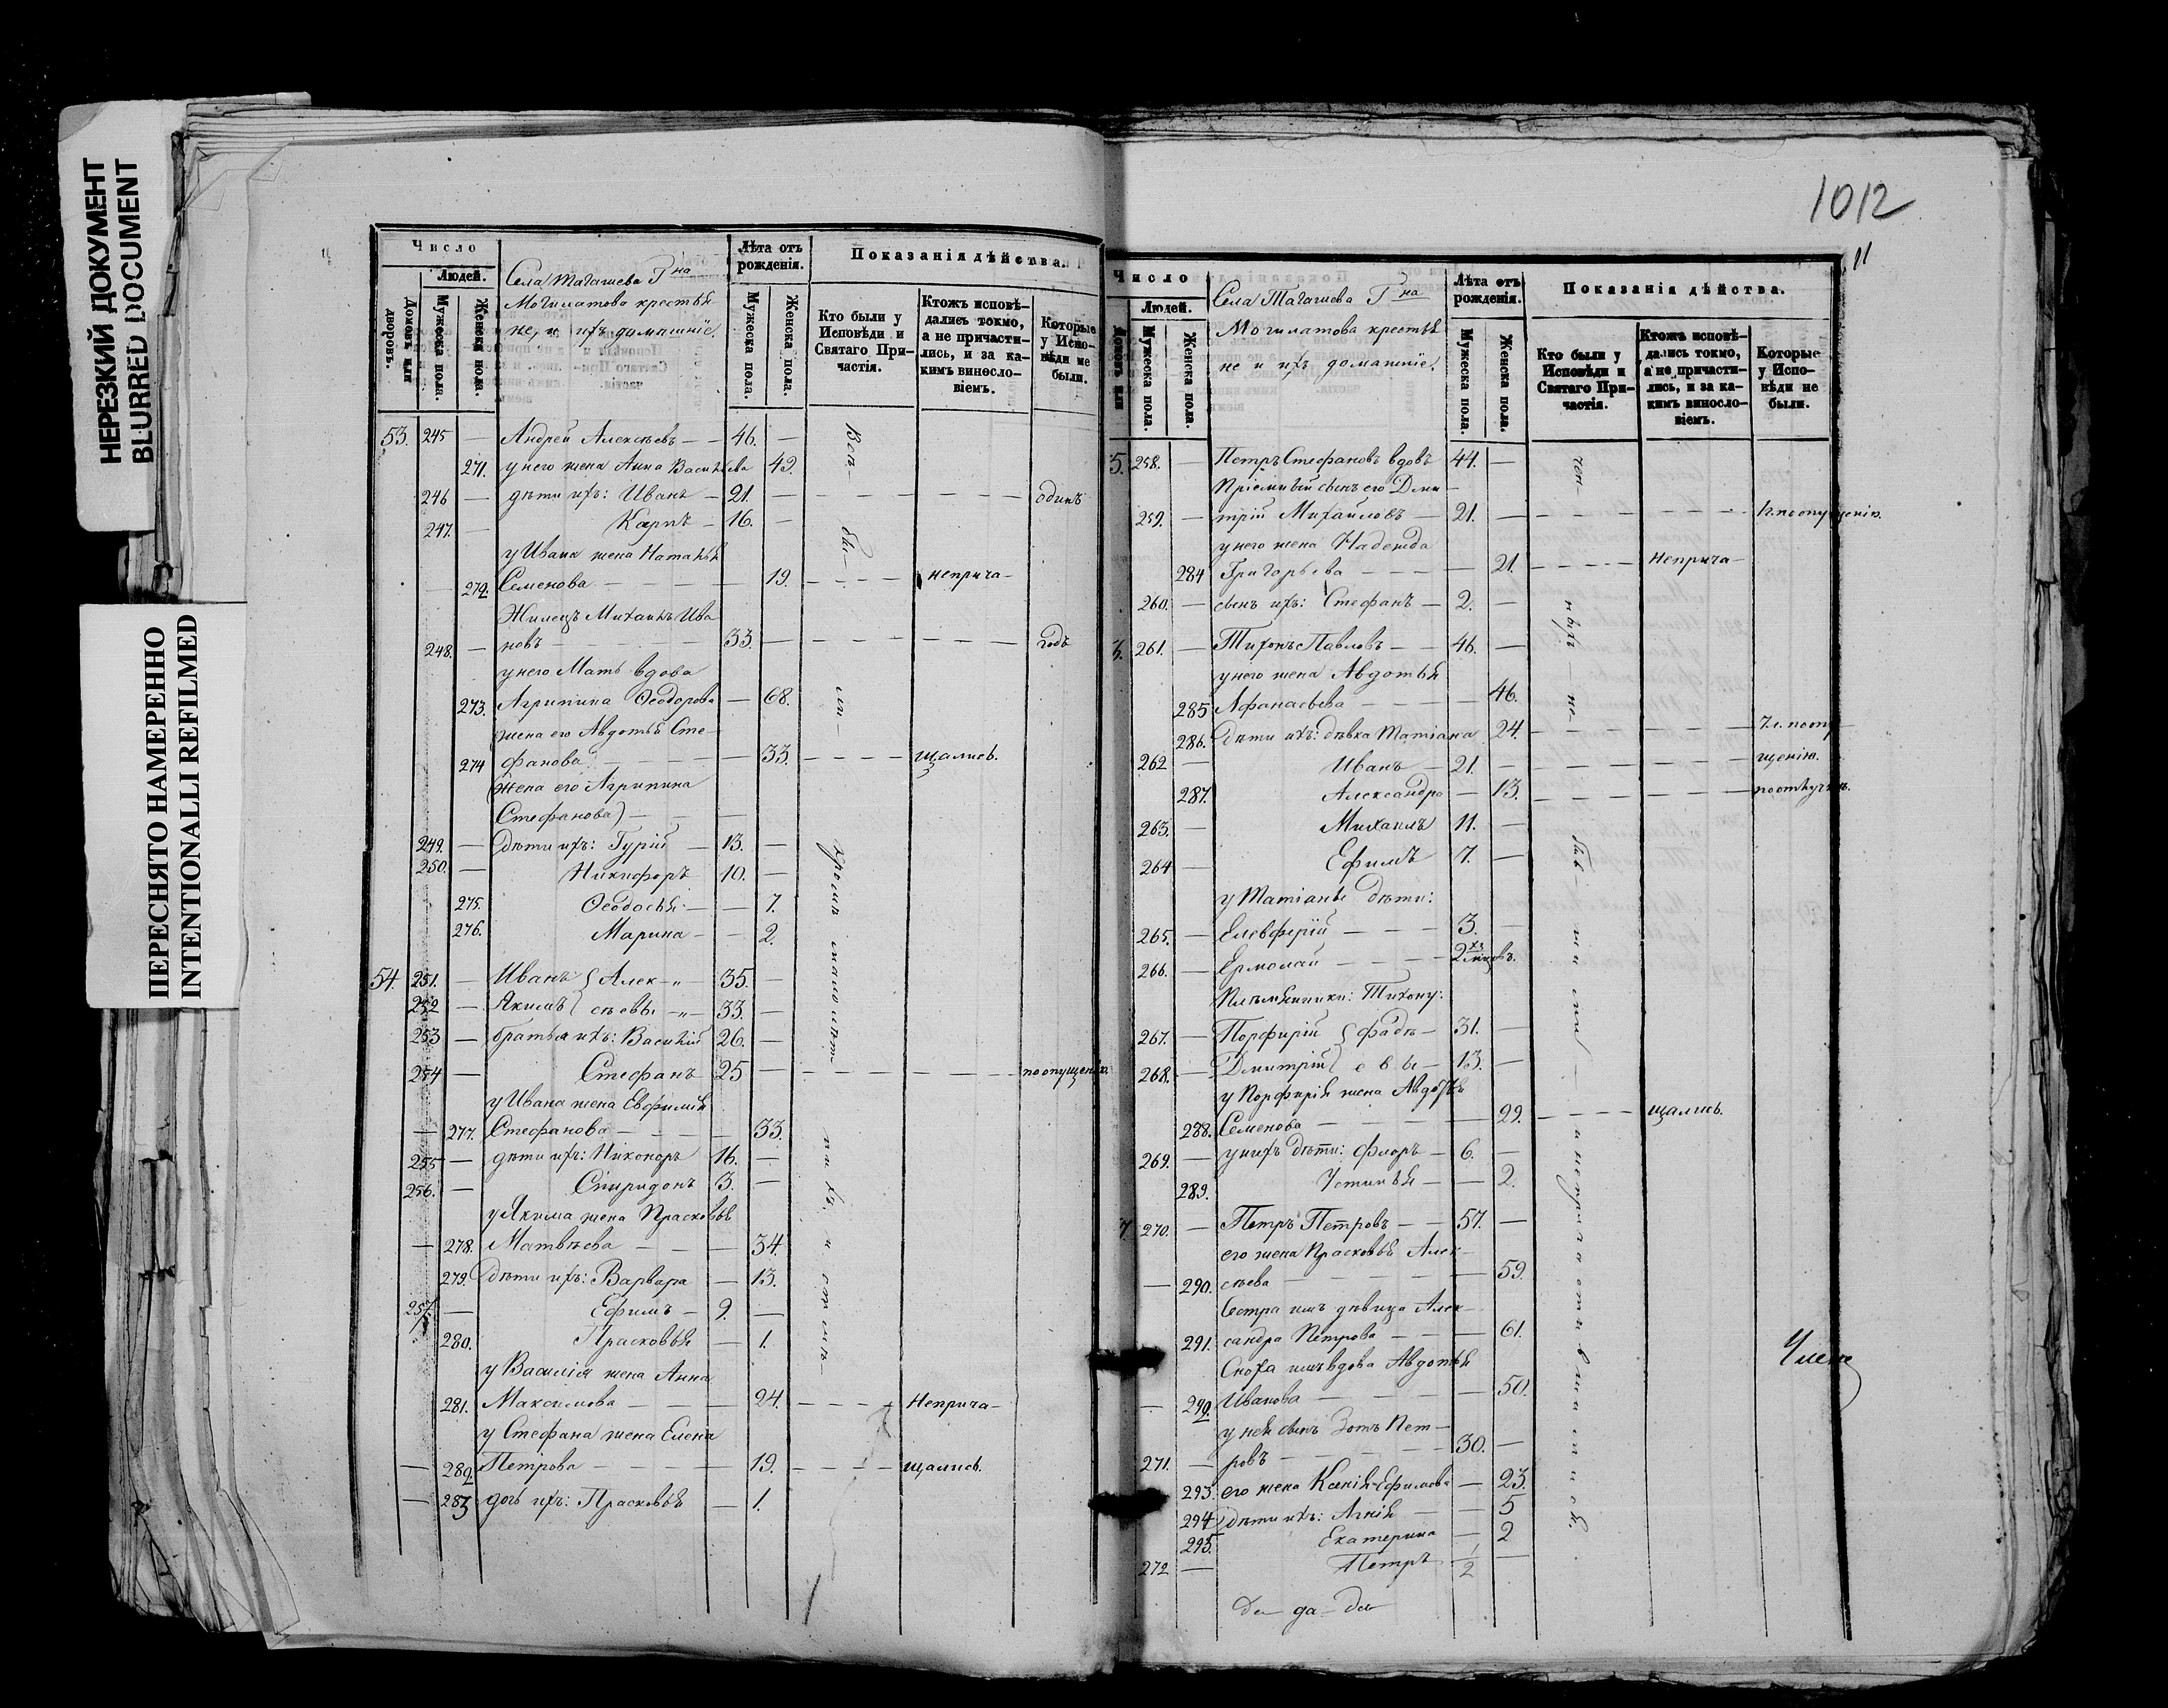 НЕРЕЗКИЙ ДОКУМЕНТ
BLURRED DOCUMENT
ПЕРЕСНЯТО НАМЕРЕННО
INTENTIONALLI REFILMED
Число
Людей.
Домовъ или дворовъ.
Мужеска пола.
Женска пола.
Села Тагашева Г на
Могилатова крестья
не, и ихъ домашніе.
Лѣта отъ рожденія.
Мужеска пола.
Женска пола.
Показанія дѣйства.
Кто были у Исповѣди и Святаго При-частія.
Ктожъ исповѣ-дались токмо, а не причасти-лись, и за ка-кимъ виносло-віемъ.
Которые у Испо-вѣди не были.
53. 245 — Андрей Алексѣевъ — — 46. —
271. у него жена Анна Васильева 49.
246 — дѣти ихъ: Иванъ — 21. — — — — — одинъ
247. — Карпъ — 16. —
у Ивана жена Наталья
272. Семенова — — — — 19. — — — неприча-
Жилецъ Михаилъ Ива
248. — новъ — — — 33. — — — — — годъ
у него Мать вдова
273. Агрипина Ѳеодорова — 68.
жена его Авдотья Сте-
274 фанова — — — — 33. — — — щались.
(жена его Агрипина
Стефанова) — — —
249. — дѣти ихъ: Гурій — 13. —
250. — Никифоръ — 10. —
275. Ѳеодосья — — 7.
276. Марина — — 2.
54. 251. — Иванъ { Алек- „ — 35. —
252 — Якимъ { сѣевы -„- 33. —
253 — братья ихъ: Василій 26. —
254 — Стефанъ 25 — — — — — по опущенію.
у Ивана жена Евфимія
— 277. Стефанова — — — — 33.
255 — дѣти ихъ: Никоноръ 16. —
256. — Спиридонъ 3. —
у Якима жена Прасковья
— 278. Матвѣева — — — 34.
279. дѣти ихъ: Варвара — 13.
257. — Ефимъ — 9. —
280. Прасковья — 1.
у Василія жена Анна
281. Максимова — — — 24. — — — Неприча-
у Стефана жена Елена
— 282. Петрова — — — — 19. — — — щались.
— 283 дочь ихъ: Прасковья — 1.
Всѣ — бы — ли — кромѣ малолѣт-
1012
11
Число
Людей.
Домовъ или
Мужеска пола.
Женска пола.
Села Тагашева Г на
Могилатова крестья
не и ихъ домашніе.
Лѣта отъ рожденія.
Мужеска пола.
Женска пола.
Показанія дѣйства.
Кто были у Исповѣди и Святаго При-частія.
Ктожъ исповѣ-дались токмо, а не причасти-лись, и за ка-кимъ виносло-віемъ.
Которые у Испо-вѣди не были.
5. 258. — Петръ Стефановъ вдовъ 44. —
Пріемный сынъ его Дми —
259. — трій Михайловъ — 21. — — — — — по опущенію.
у него жена Надежда
284 Григорьева — — — — 21. — — — Неприча-
260. — сынъ ихъ: Стефанъ — 2. —
261. — Тихонъ Павловъ — — 46. —
у него жена Авдотья
285 Афанасьева — — — — 46.
286. Дѣти ихъ: дѣвка Татіана 24. — — — — по опу-
262 — Иванъ — 21. — — — — — щенію.
287. Александра — 13. — — — — по отлучкѣ.
263. — Михаилъ 11. —
264 — Ефимъ 7. —
у Татіаны дѣти:
265. — Елевферій — — — 3. —
266. — Ермолай — — — — 2хъ
Племянники: Тихону:
267. — Порфирій { Фадѣ — 31. —
268. — Дмитрій { е в ы — 13. —
у Порфирія жена Авдотья
288. Семенова — — — — 29. — — — щались.
269. — у нихъ дѣти: Флоръ — 6. —
289. Устинья — — 2.
7 270. — Петръ Петровъ — — 57. —
его жена Прасковья Алек-
— 290. сѣева — — — — — 59.
Сестра имъ дѣвица Алек-
291. сандра Петрова — — — 61.
Сноха имъ вдова Авдотья
— 292. Иванова — — — — 50.
у ней сынъ Зотъ Пет-
271. — ровъ — — — — 30. —
293. его жена Ксенія Ефимова — 23.
294 дѣти ихъ: Агнія — — 5
295. Екатерина — 2
272 — Петръ 1/2 —